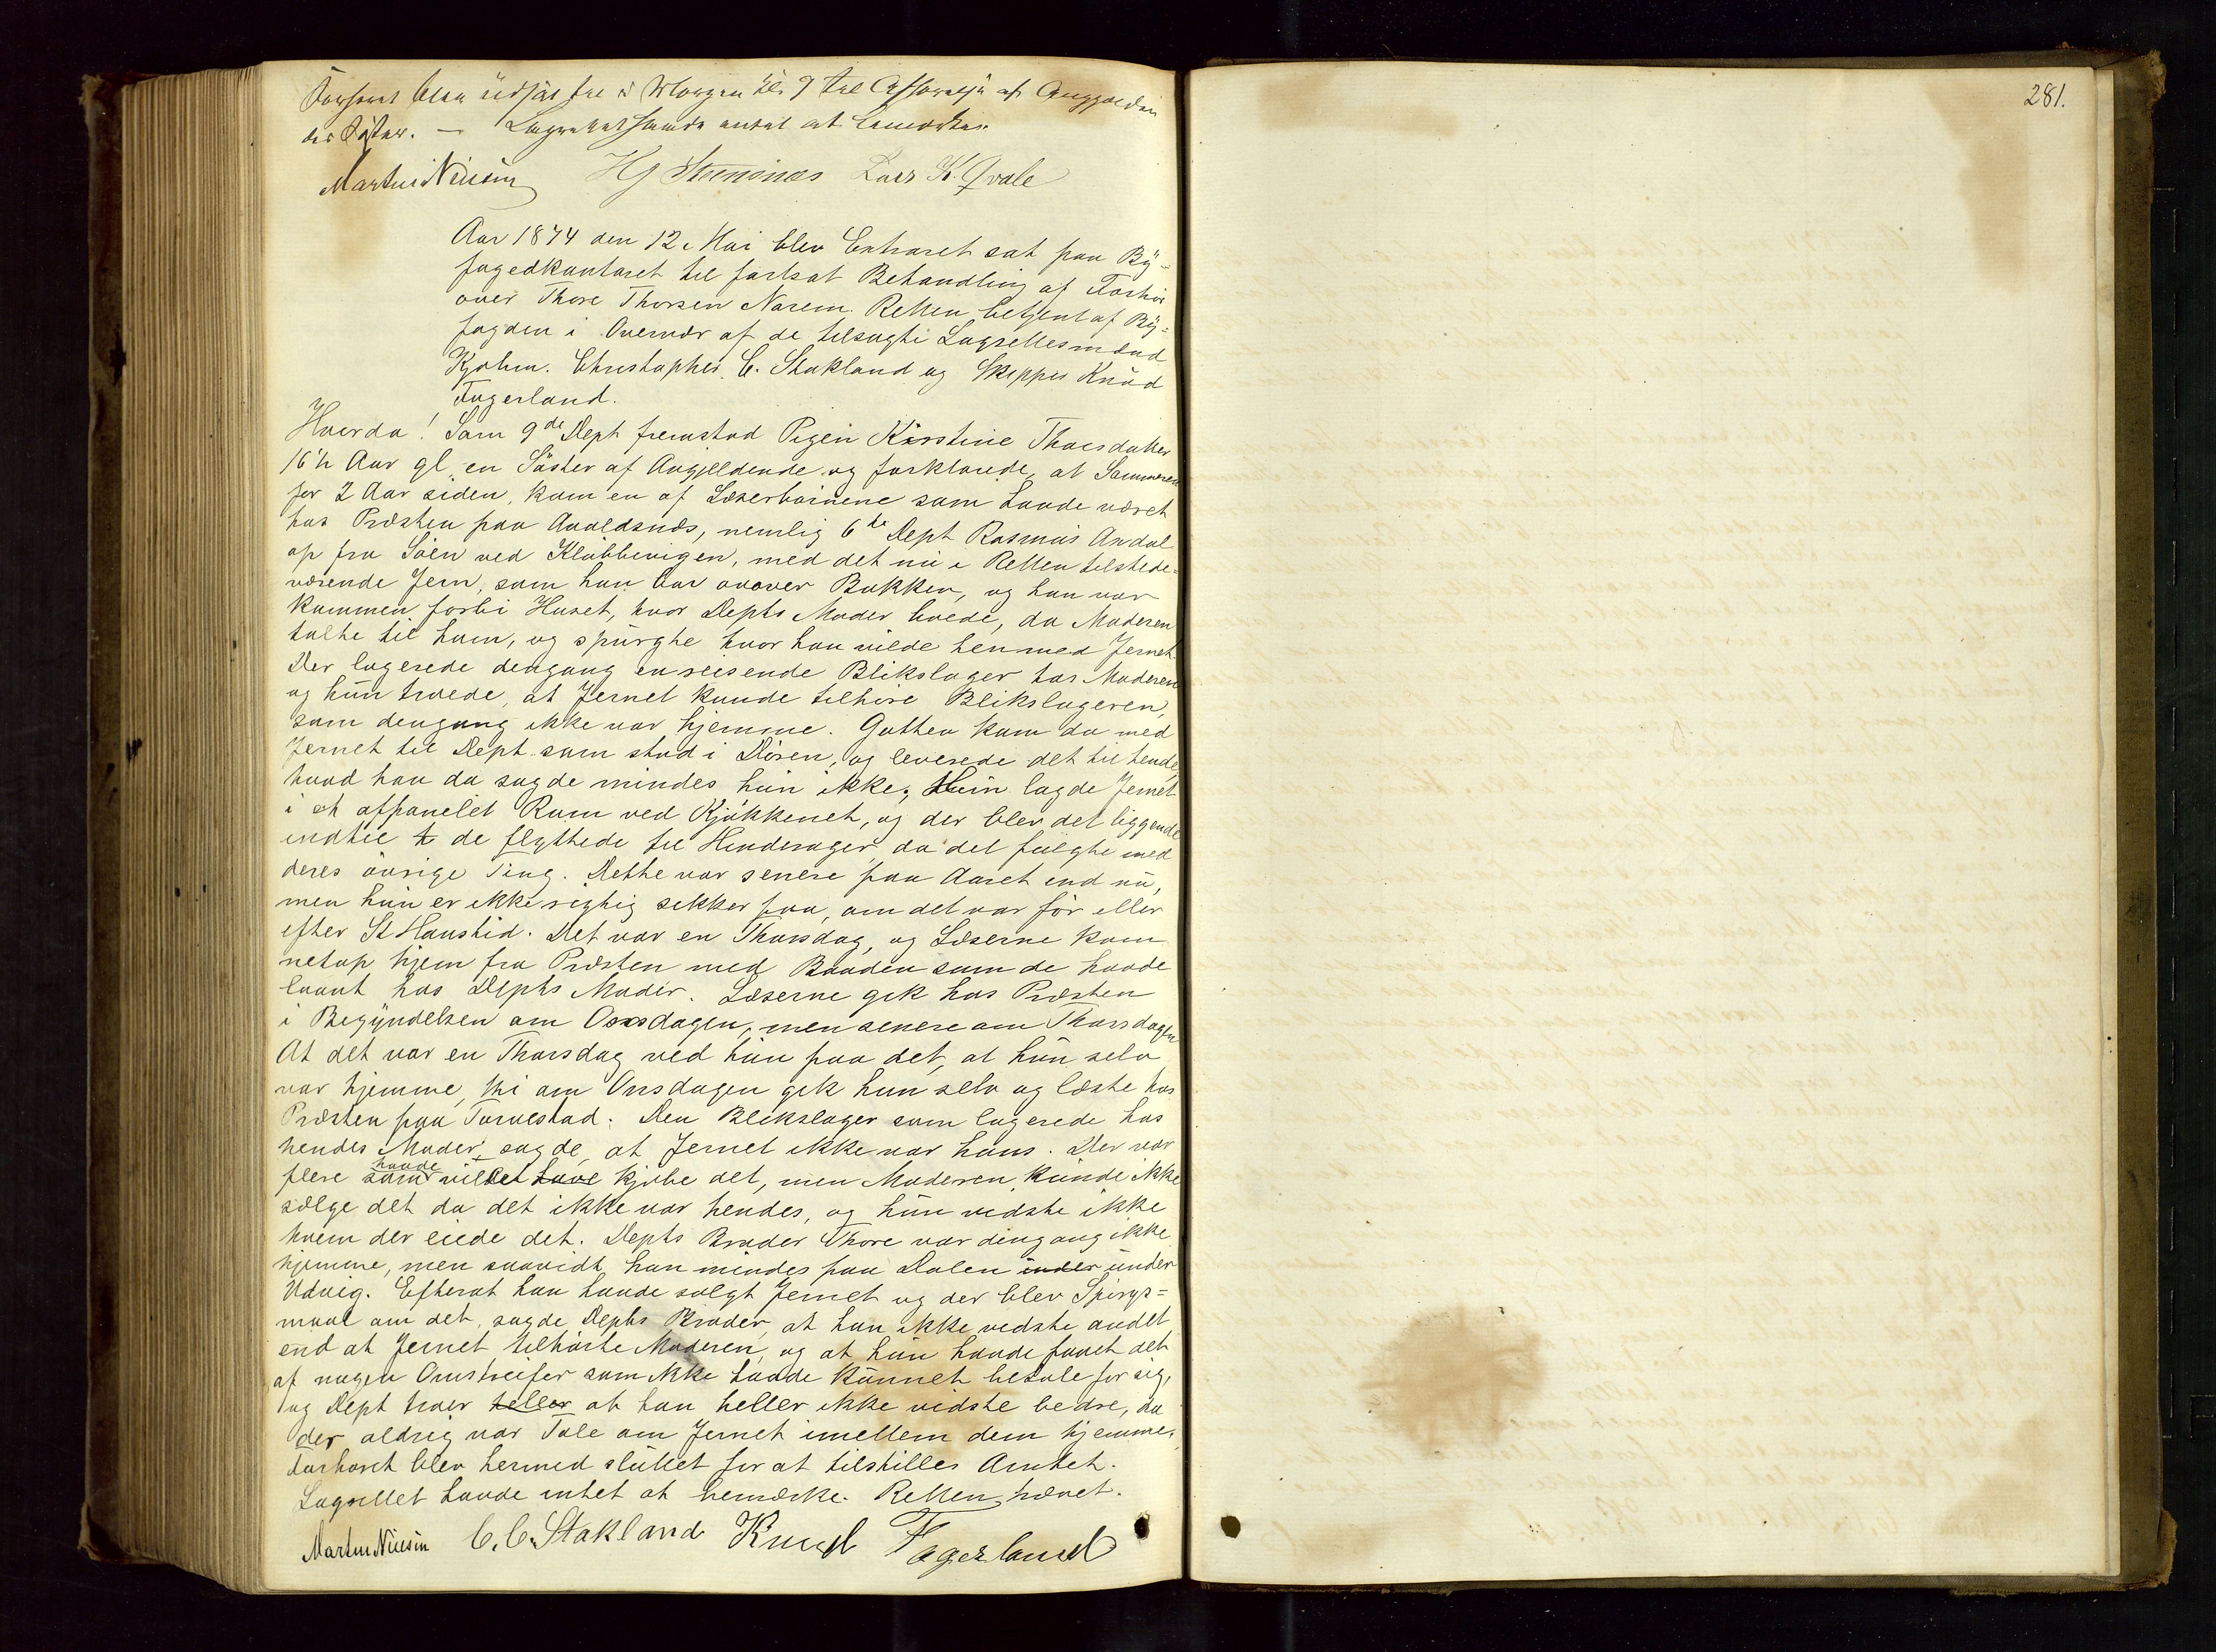 Forhøret blev udsat til i Morgen Kl. 9 til Afhørelse af Angjældendes
Søster. — Lagrettet havde intet at bemærke.
Martin Nilsen HG Steensnæs Lars K. Qvale
Aar 1874 den 12. Mai blev Extraret sat paa By-
fogedkontoret til fortsat Behandling af Forhør
over Thore Thorsen Norem. Retten betjent af By-
fogden i Overvær af de tilsagte Lagrettesmænd
Kjøbm. Christopher C. Stakland og Skipper Knud
Fagerland.
Hvorda! Som 9de Dept fremstod Pigen Kirstine Thorsdatter
16½ Aar gl. en Søster af Angjeldende og forklarede, at Sommeren
for 2 Aar siden, kom en af Læserbørnene som havde været
hos Præsten paa Avaldsnæs, nemlig 6te Dept Rasmus Ardal
op fra Søen ved Klubbevigen, med det nu i Retten tilstede-
værende Jern, som han bar over Bakken, og han var
kommen forbi Huset, hvor Depts Moder boede, da Moderen
talte til ham, og spurgte hvor han vilde hen med Jernet.
Der logerede dengang en reisende Blikslager hos Moderen
og hun troede, at Jernet kunde tilhøre Blikslageren,
som dengang ikke var hjemme. Gutten kom da med
Jernet til Dept som stod i Døren, og leverede det til hende,
hvad han da sagde mindes hun ikke; Hun lagde Jernet
i et afpanelet Rum ved Kjøkkenet, og der blev det liggende
indtil t de flyttede til Hinderager, da det fulgte med
deres øvrige Ting. Dette var senere paa Aaret end nu,
men hun er ikke rigtig sikker paa, om det var før eller
efter St Hanstid. Det var en Thorsdag, og Læserne kom
netop hjem fra Præsten med Baaden som de havde
laant hos Depts Moder. Læserne gik hos Præsten
i Begyndelsen om Onsdagen, men senere om Thorsdagen
At det var en Thorsdag ved hun paa det, at hun selv
var hjemme, thi om Onsdagen gik hun selv og læste hos
Præsten paa Torvestad. Den Blikslager som logerede hos
hendes Moder sagde, at Jernet ikke var hans. Der var
flere som havde villet have kjøbe det, men Moderen kunde ikke
sælge det da det ikke var hendes, og hun vidste ikke
hvem der eiede det. Depts Broder Thore var dengang ikke
hjemme, men saavidt hun mindes paa Dalen under under
Udvig. Efterat han havde solgt Jernet og der blev Spørgs-
maal om det, sagde Depts Broder, at han ikke vidste andet
end at Jernet tilhørte Moderen, og at hun havde faaet det
af nogen Omstreifer som ikke havde kunnet betale for sig,
og Dept troer heller at han heller ikke vidste bedre, da
der aldrig var Tale om Jernet imellem dem hjemme.
Forhøret blev hermed sluttet for at tilstilles Amtet.
Lagrettet havde intet at bemærke. Retten hævet.
Martin Nilsen C. C. Stakland Knud Fagerland
281.